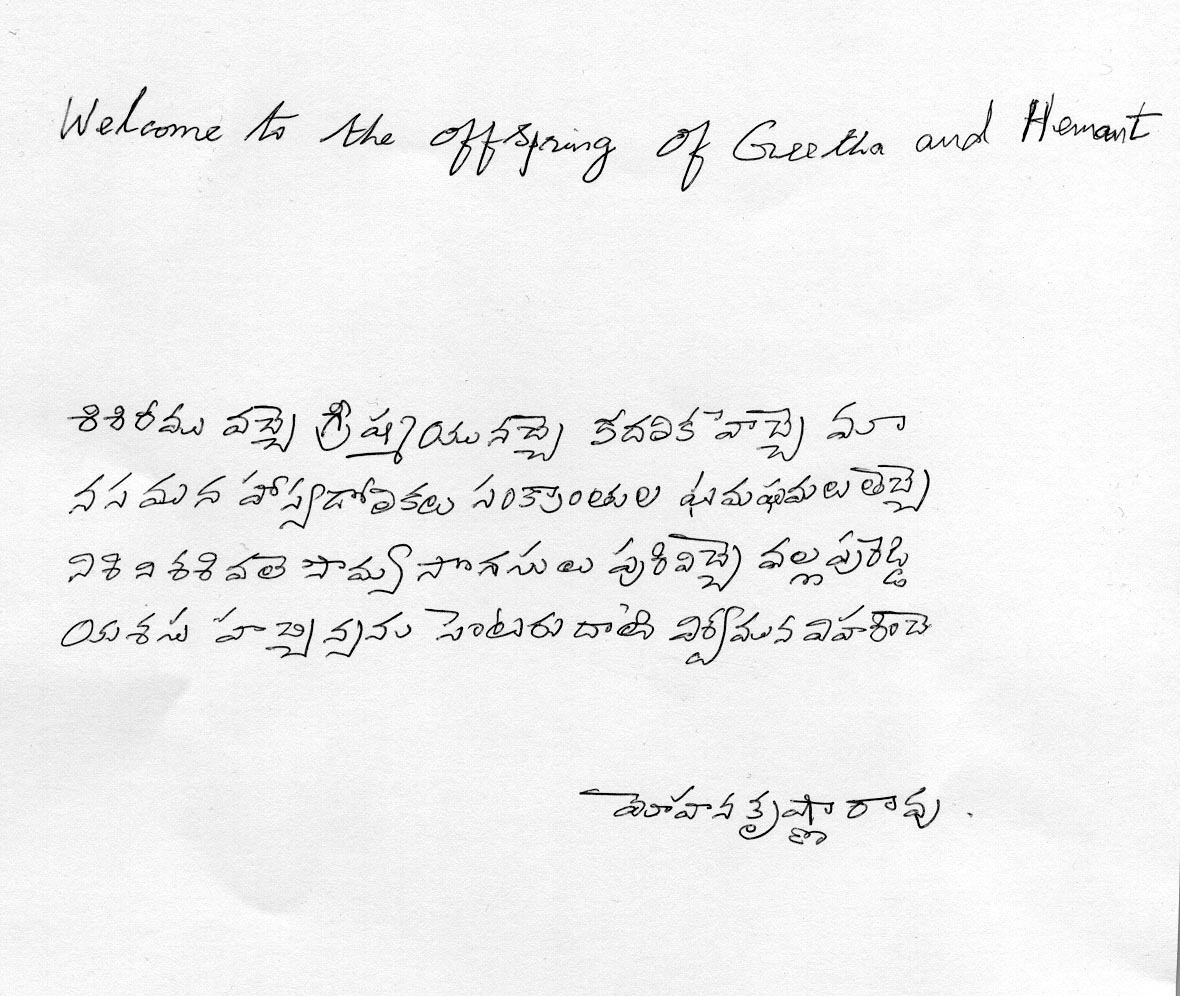 Welcome to the offspring of Geetha and Hemant
శిశిరము వచ్చె గ్రీష్మ యునచ్చె కేదలిక హెచ్చె మా
నసమున హాస్యడోలికలు సంక్రాంతుల ఘుమఘుమలు తెచ్చె
నిశిని శశివలె సామ్య సొగసులు పురివిచ్చె వల్లపురెడ్డి
యశసు హెచ్చి న్నను సొబరు దాతని విశ్వమున విహరించె
మోహనకృష్ణారావు.